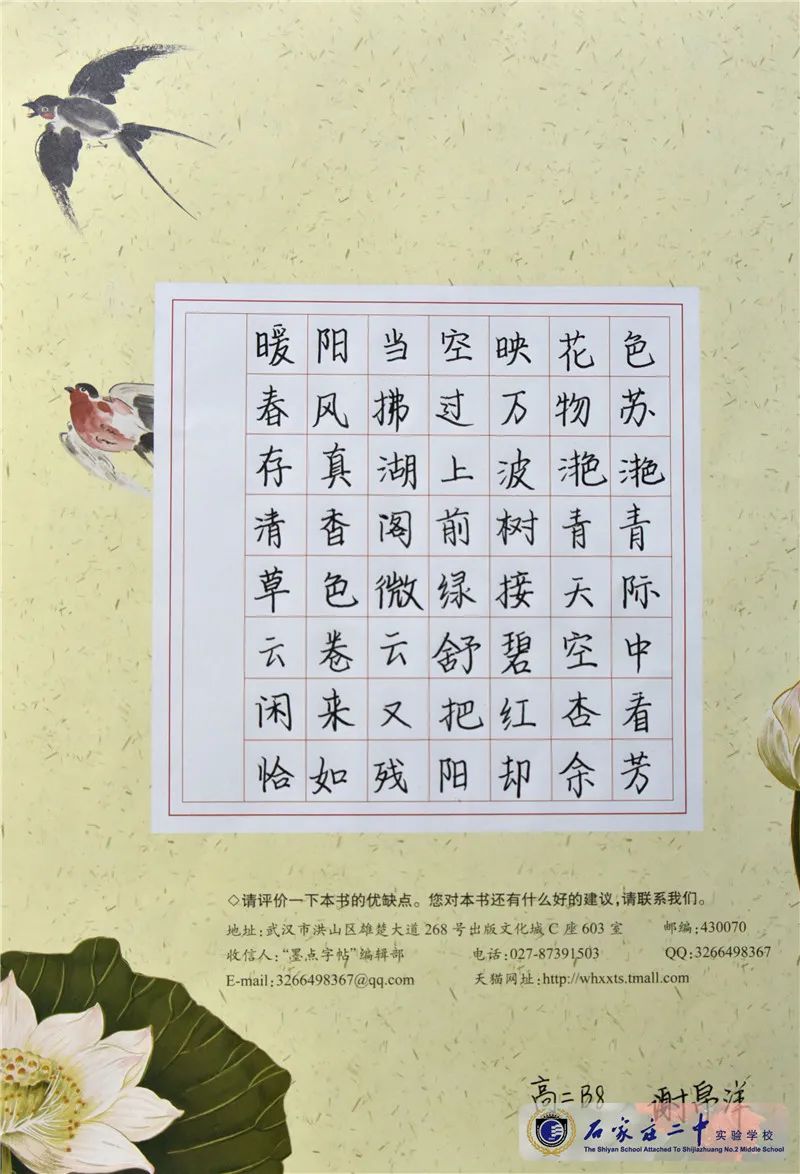 暖阳当空映花色
春风拂过万物苏
存真湖上波滟滟
清香阁前树青青
草色微绿接天际
云卷云舒碧空中
闲来又把红杏看
恰如残阳却余芳
◇请评价一下本书的优缺点。您对本书还有什么好的建议,请联系我们。
地址:武汉市洪山区雄楚大道268号出版文化城C座603室 邮编:430070
收信人:“墨点字帖”编辑部 电话:027-87391503 QQ:3266498367
E-mail:3266498367@qq.com 天猫网址:http://whxxts.tmall.com
高二B8 谢洋
石家庄二中实验学校
The Shiyan School Attached To Shijiazhuang No.2 Middle School